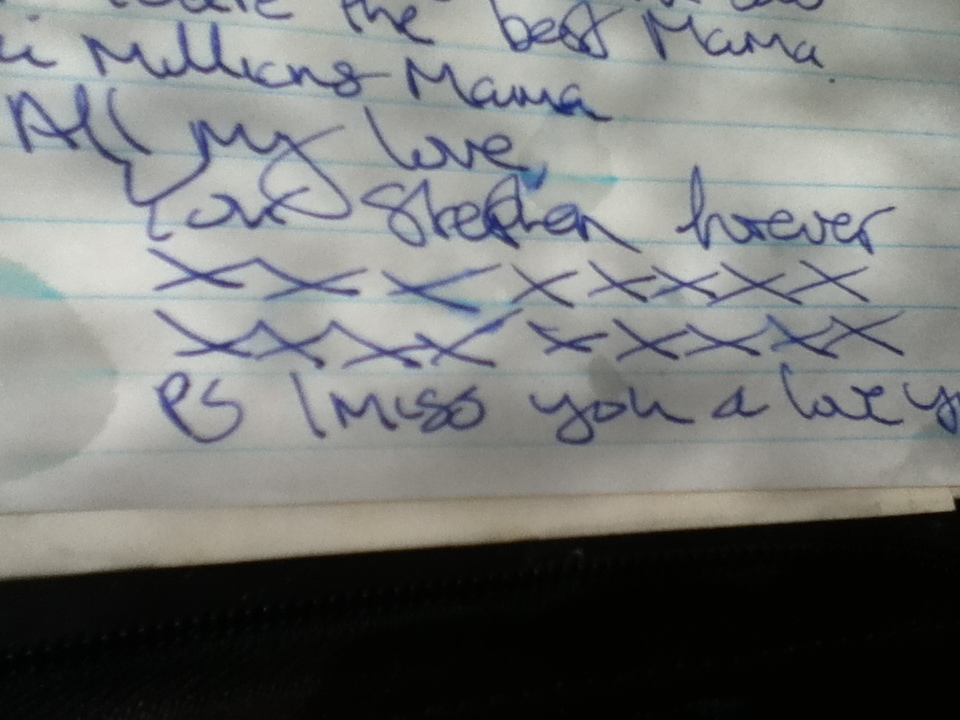 the best Mama
Millions Mama
All my love,
Your Stephen forever
X X X X X X X X
X X X X X X X X X
PS I miss you & love y